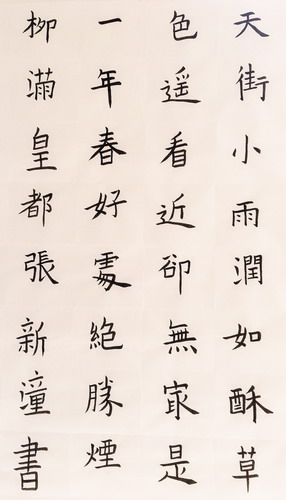 天街小雨潤如酥草
色遥看近卻無㝡是
一年春好處絕勝煙
柳滿皇都張新潼書